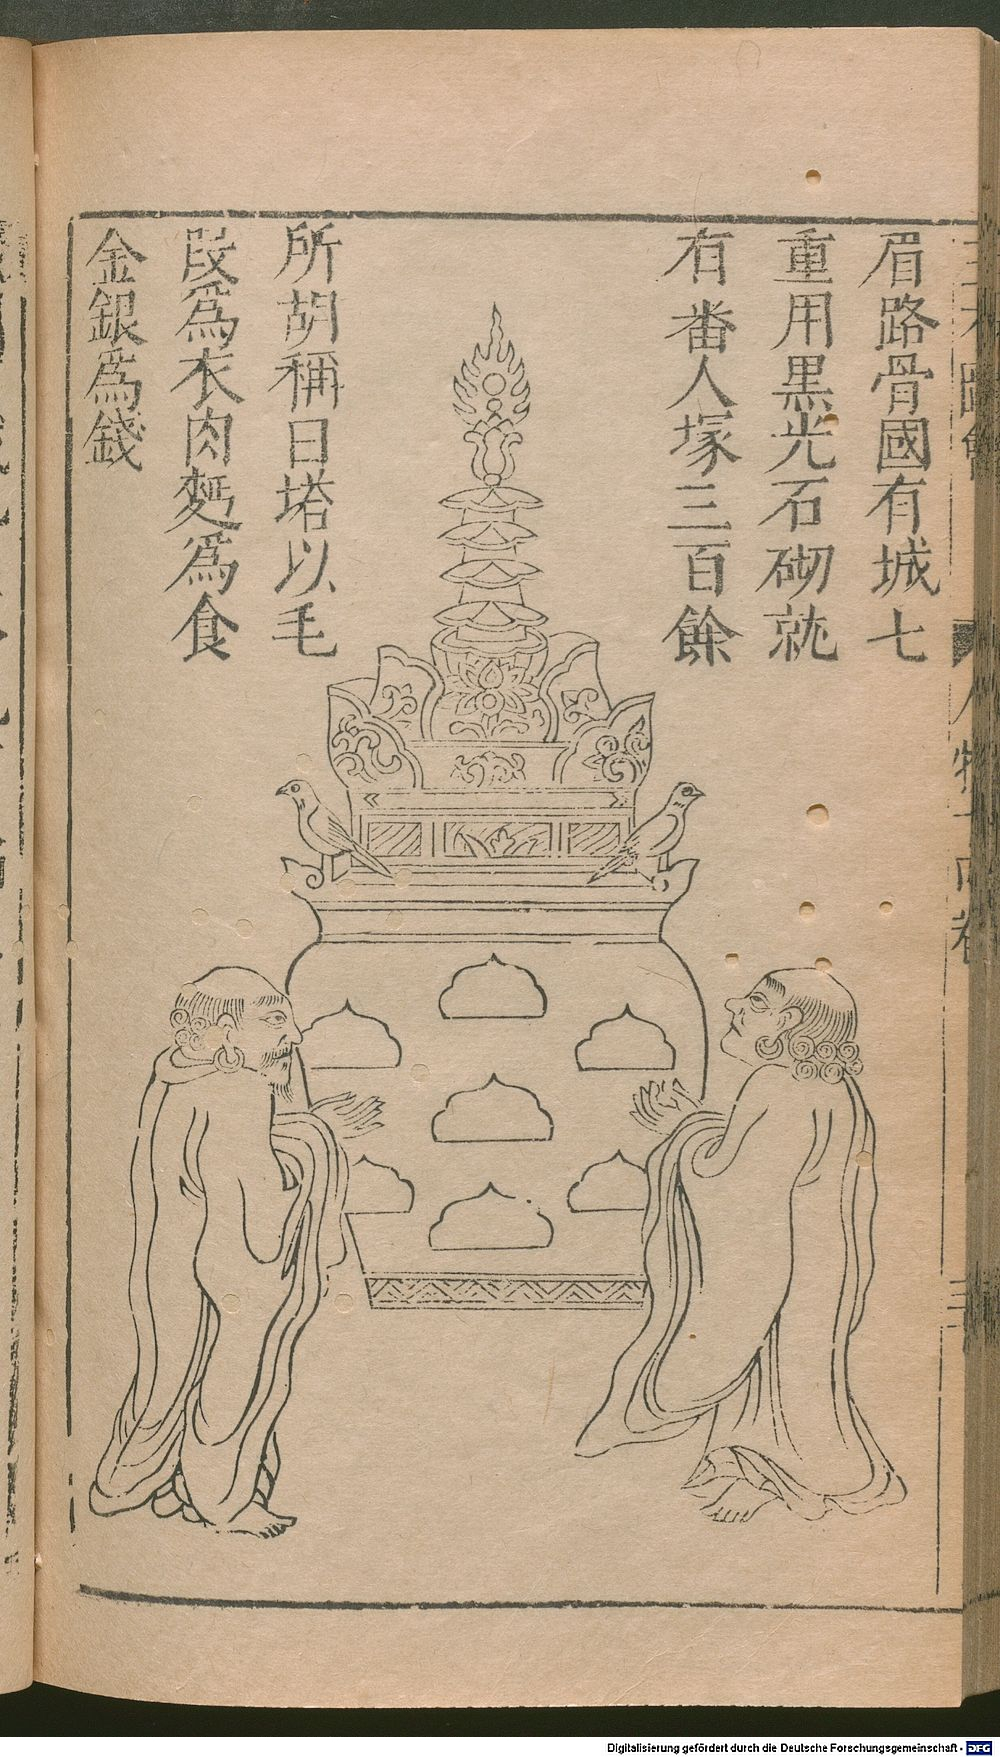 眉路骨國有城七
重用黒光石砌就
有番人塚三百餘
所胡稱曰塔以毛
段爲衣肉麪爲食
金銀爲錢
三才圖會
人物十四卷
Digitalisierung gefördert durch die Deutsche Forschungsgemeinschaft - DFG